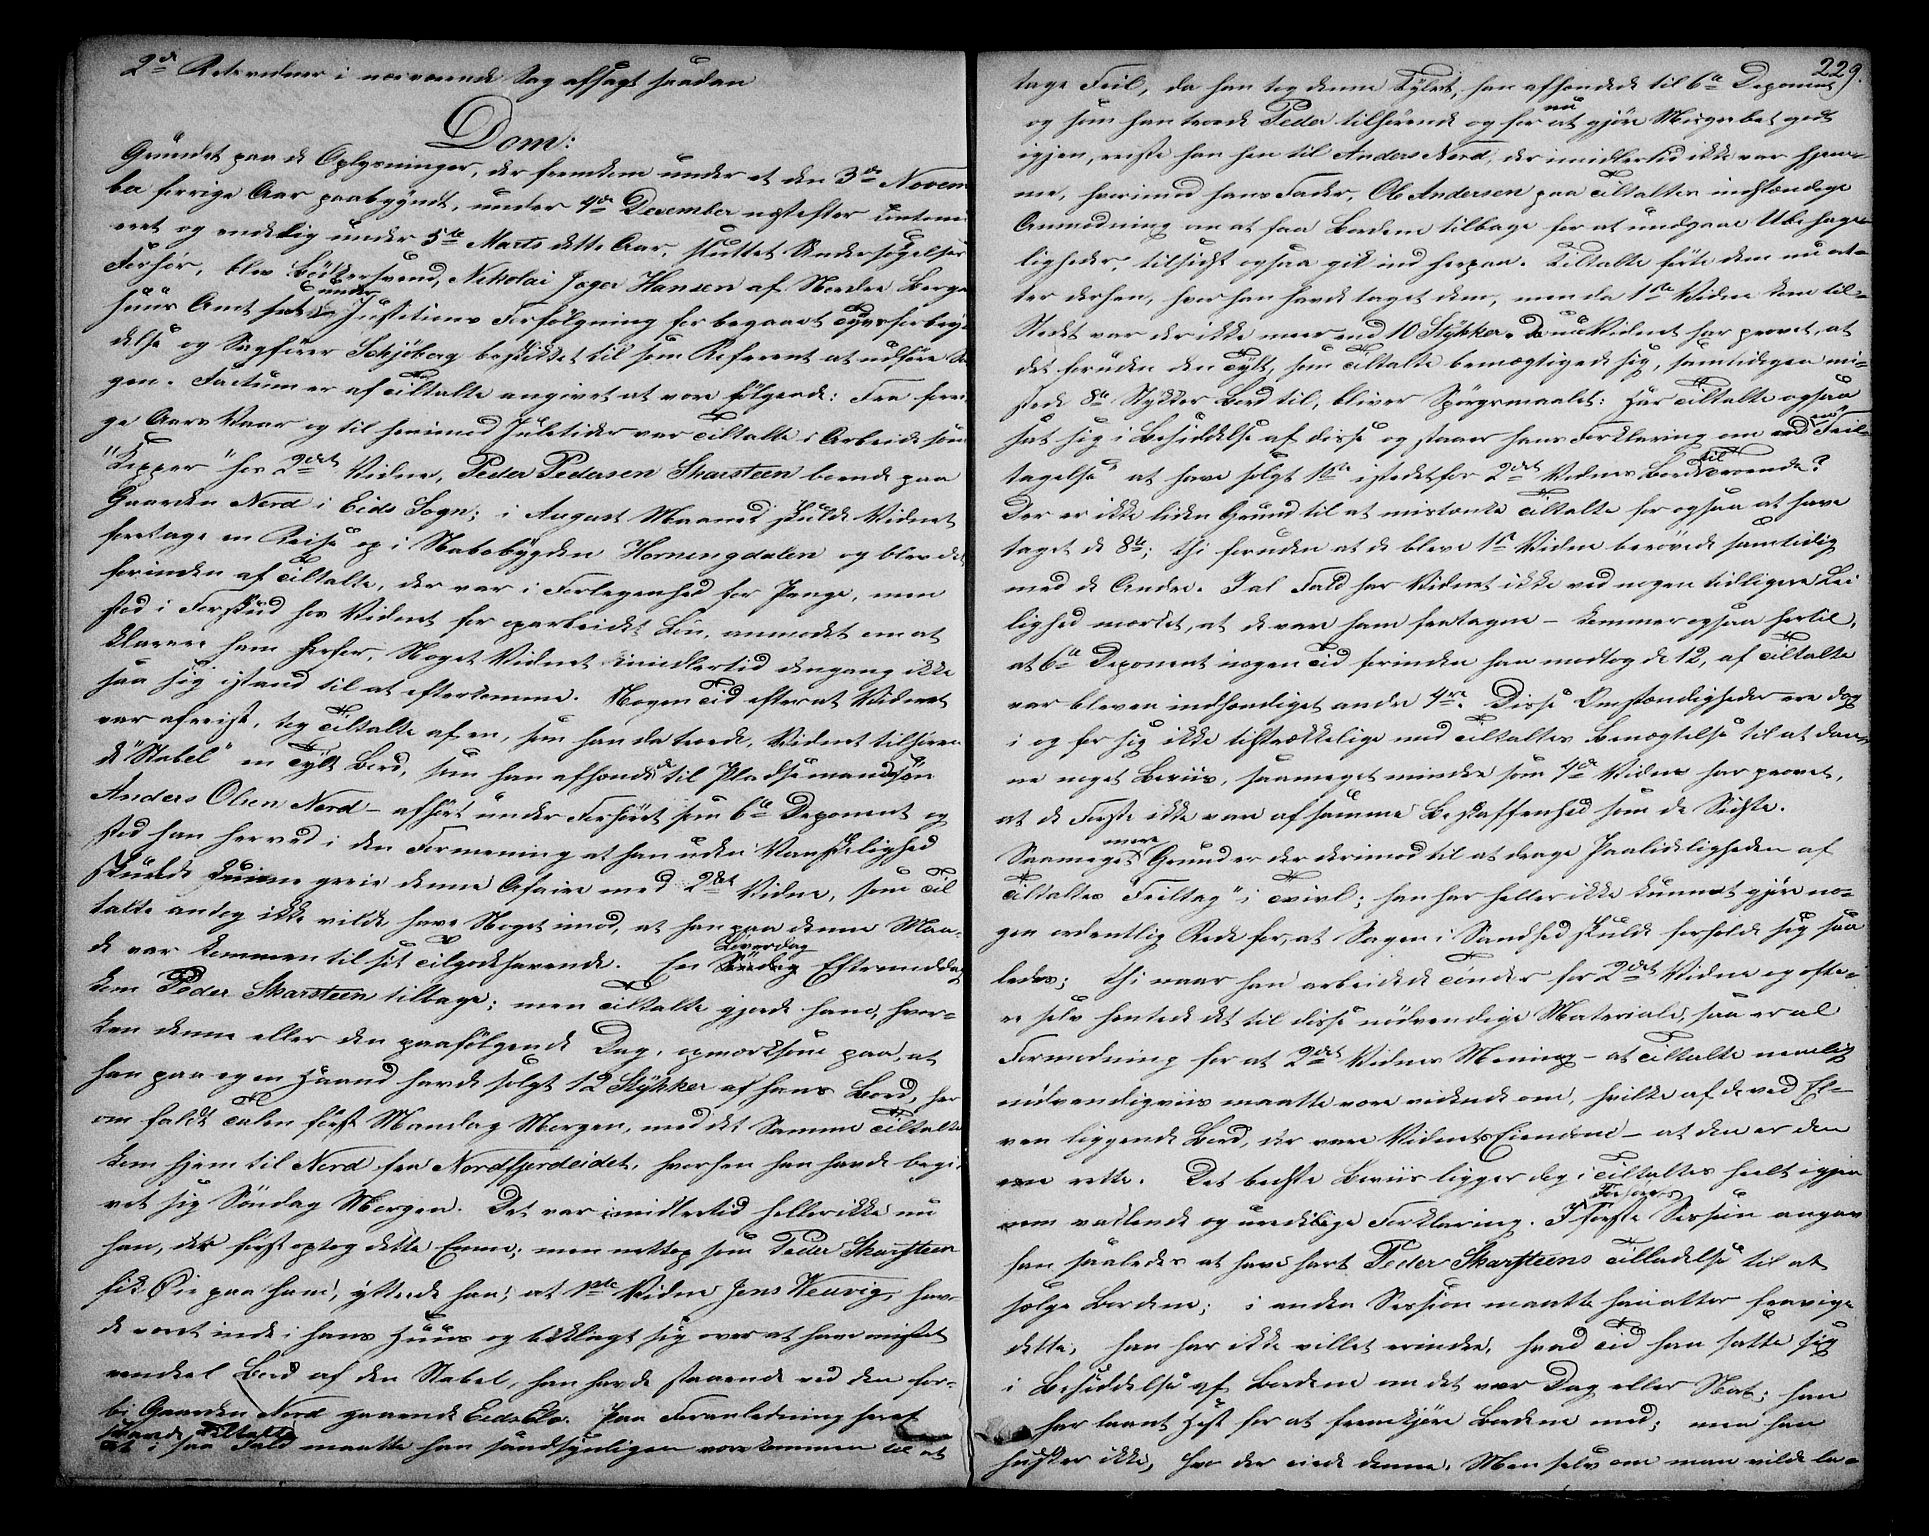 2de Retsvidner i nærværende Sag afsagt saadan
Dom:
Grundet paa de Oplysninger, der fremkom under et den 3die Novem
ber forrige Aar paabegyndt, under 4de December næstefter kontinu
eret og endelig under 5te Marts dette Aar, sluttet Undersøgelses
Forhør, blev Bødkersvend, Nikolai Jager Hansen af Nordre Bergen
huus Amt sat under Justitiens Forfølgning for begaaet Tyvsforbry
delse og Sagfører Schjöberg beskikket til som Referent at udføre Sa
gen. Factum er af Tiltalte angivet at være følgende: Fra forri
ge Aars Vaar og til henimod Juletider var Tiltalte i Arbeide som
"Kipper" hos 2det Vidne, Peder Pedersen Skarsteen boende paa
Gaarden Nord i Eids Sogn; i August Maaned skulde Vidnet
foretage en Reise op i Nabobygden Horningdalen og blev det
forinden af Tiltalte, der var i Forlegenhed for Penge, men
stod i Forskud hos Vidnet for oparbeidet Løn, anmodet om at
klarere ham herfor, Noget Vidnet imidlertid dengang ikke
saa sig istand til at efterkomme. Nogen Tid efterat Vidnet
var afreist, tog Tiltalte af en, som han da troede, Vidnet tilhøren
de "Stabel" en Tylt Bord, som han afhændede til Pladsemandssøn
Anders Olsen Nord – afhørt under Forhøret som 6te Deponent og
stod han herved i den Formening at han uden Vanskelighed
skulde kunne greie denne Afaire med 2det Vidne, som Til
talte antog ikke vilde have Noget imod, at han paa denne Maa-
de var kommen til sit Tilgodehavende. En Løverdag Eftermiddag
kom Peder Skarsteen tilbage; men Tiltalte gjorde ham, hvor-
ken denne eller den paafølgende Dag, opmærksom paa, at
han paa egen Haand havde solgt 12 Stykker af hans Bord, her
om faldt Talen først Mandag Morgen, med det Samme Tiltalte
kom hjem til Nord fra Nordfjordeidet, hvorhen han havde begi-
vet sig Søndag Morgen. Det var imidlertid heller ikke nu
han, der først optog dette Emne; men nettop som Peder Skarsteen
fik Øie paa ham, yttrede han, at 1ste Vidne Jens Weuvig, hav-
de været inde i hans Huus og beklaget sig over at have mistet
endeel Bord af den Stabel, han havde staaende ved den for-
bi Gaarden Nord gaaende Eids Elv. Paa Foranledning heraf
svarede Tiltalte
at i saa Fald maatte han sandsynligen være kommen til at
229.
tage Feil, da han tog denne Tylvt, han afhændede til 6te Deponent
og som han troede Peder tilhørende og for nu at gjøre Misgrebet godt
igjen, reiste han hen til Anders Nord, der imidlertid ikke var hjem-
me, hvorimod hans Fader, Ole Andersen paa Tiltaltes indstændige
Anmodning om at faa Bordene tilbage for at undgaae Ubehage-
ligheder, tilsidst ogsaa gik ind herpaa. Tiltalte førte dem nu at-
ter derhen, hvor han havde taget dem, men da 1ste Vidne kom til-
Stedet var der ikke mere end 10 Stykker. Da nu Vidnet har provet, at
det foruden den Tylt, som Tiltalte bemægtigede sig, samtidigen mi-
stede 8te Stykker Bord til, bliver Spørgsmaalet: Har Tiltalte ogsaa
sat sig i Besiddelse af disse og staaer hans Forklaring om en "Feil-
tagelse" at have solgt 1ste istedetfor 2det Vidnes Bord til Troende?
Der er ikke liden Grund til at mistænke Tiltalte for ogsaa at have
taget de 8te; thi foruden at de bleve 1ste Vidne berøvede samtidig
med de Andre. I al Fald har Vidnet ikke ved nogen tidligere Lei
lighed mærket, at de vare ham fratagne – kommer ogsaa hertil,
at 6te Deponent nogen Tid forinden han modtog de 12, af Tiltalte
var bleven indhændiget andre 4re. Disse Omstændigheder ere dog
i og for sig ikke tilstrækkelige mod Tiltaltes Benægtelse til at dan-
ne noget Beviis, saameget mindre som 4de Vidne har provet,
at de Første ikke vare af samme Beskaffenhed som de Sidste.
Saameget mere Grund er der derimod til at drage Paalideligheden af
Tiltaltes "Feiltag" i Tvivl; han har heller ikke kunnet gjøre no-
gen ordentlig Rede for, at Sagen i Sandhed skulde forholde sig saa
ledes; thi naar han arbeidede Tønder for 2det Vidne og ofte-
re selv hentede det til disse nødvendige Materiale, saa er al
Formodning for at 2det Vidnes Mening – at Tiltalte nemlig
nødvendigviis maatte være vidende om, hvilke af de ved El-
ven liggende Bord, der vare Vidnets Eiendom – at den er den
ene rette. Det bedste Beviis ligger dog i Tiltaltes heelt igjen
nem vaklende og uredelige Forklaring. I Forhørets første Session angav
han saaledes at have havt Peder Skarsteens Tilladelse til at
sælge Bordene; i anden Session maatte han atter fravige
dette, han har ikke villet erindre, hvad Tid han satte sig
i Besiddelse af Bordene om det var Dag eller Nat; han
har laant Hest for at fremkjøre Bordene med; men han
husker ikke, hvo der eiede denne. Men selv om man vilde la-